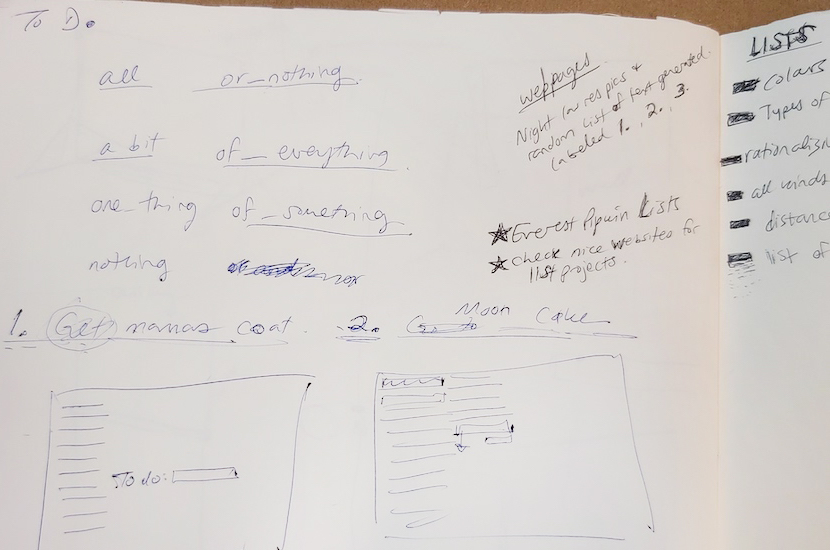 To Do
all or_nothing.
a bit of_everything.
one_thing of_something
nothing
webpages
Night low res pics &
random list of text generated.
labeled 1., 2., 3.
Everest Pipkin Lists
check nice websites for
list projects.
1. Get mamas coat.
2. Go to Moon Cake
To do:
LISTS
colours
Types of
all kinds
distance
list of